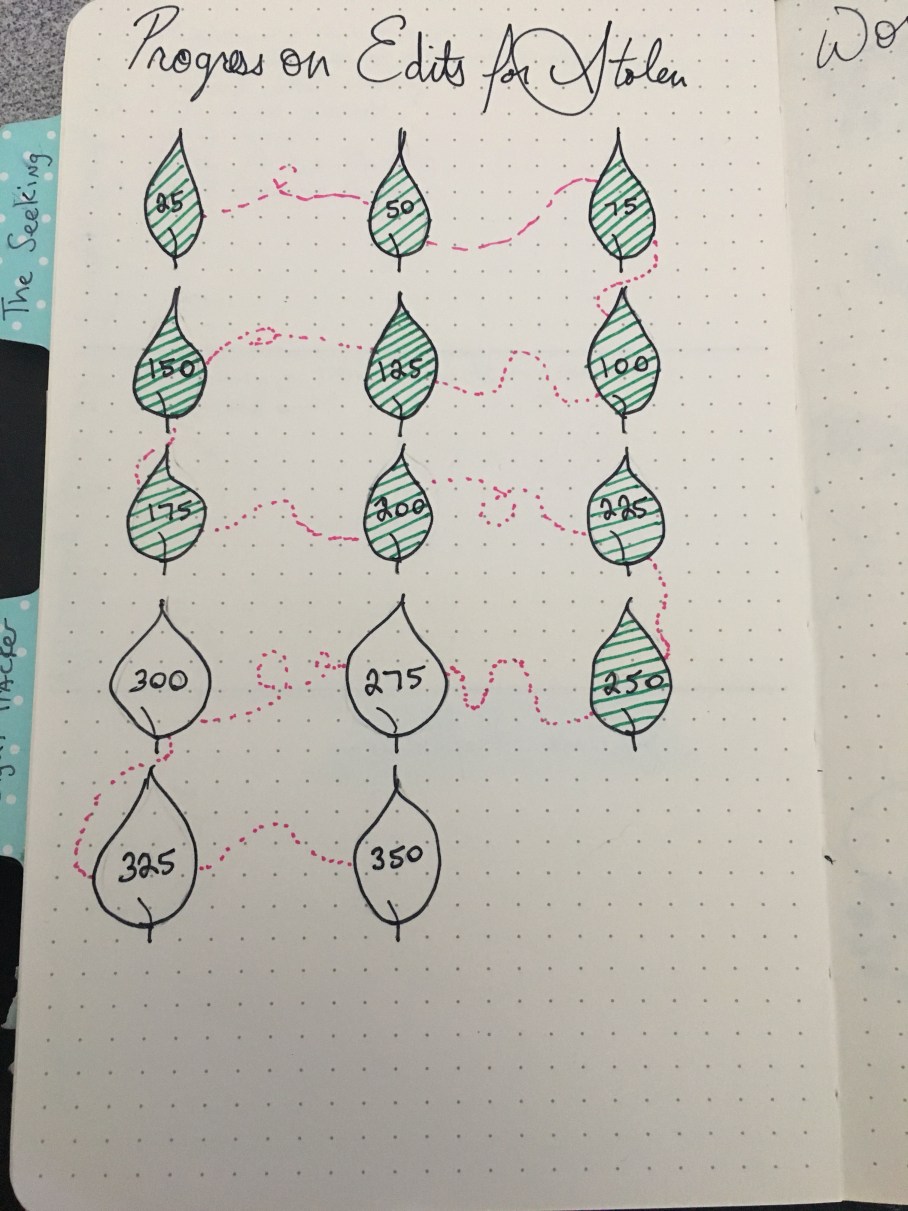 Progress on Edits for Stolen
Wo
The Seeking
25 50 75
150 125 100
175 200 225
300 275 250
325 350